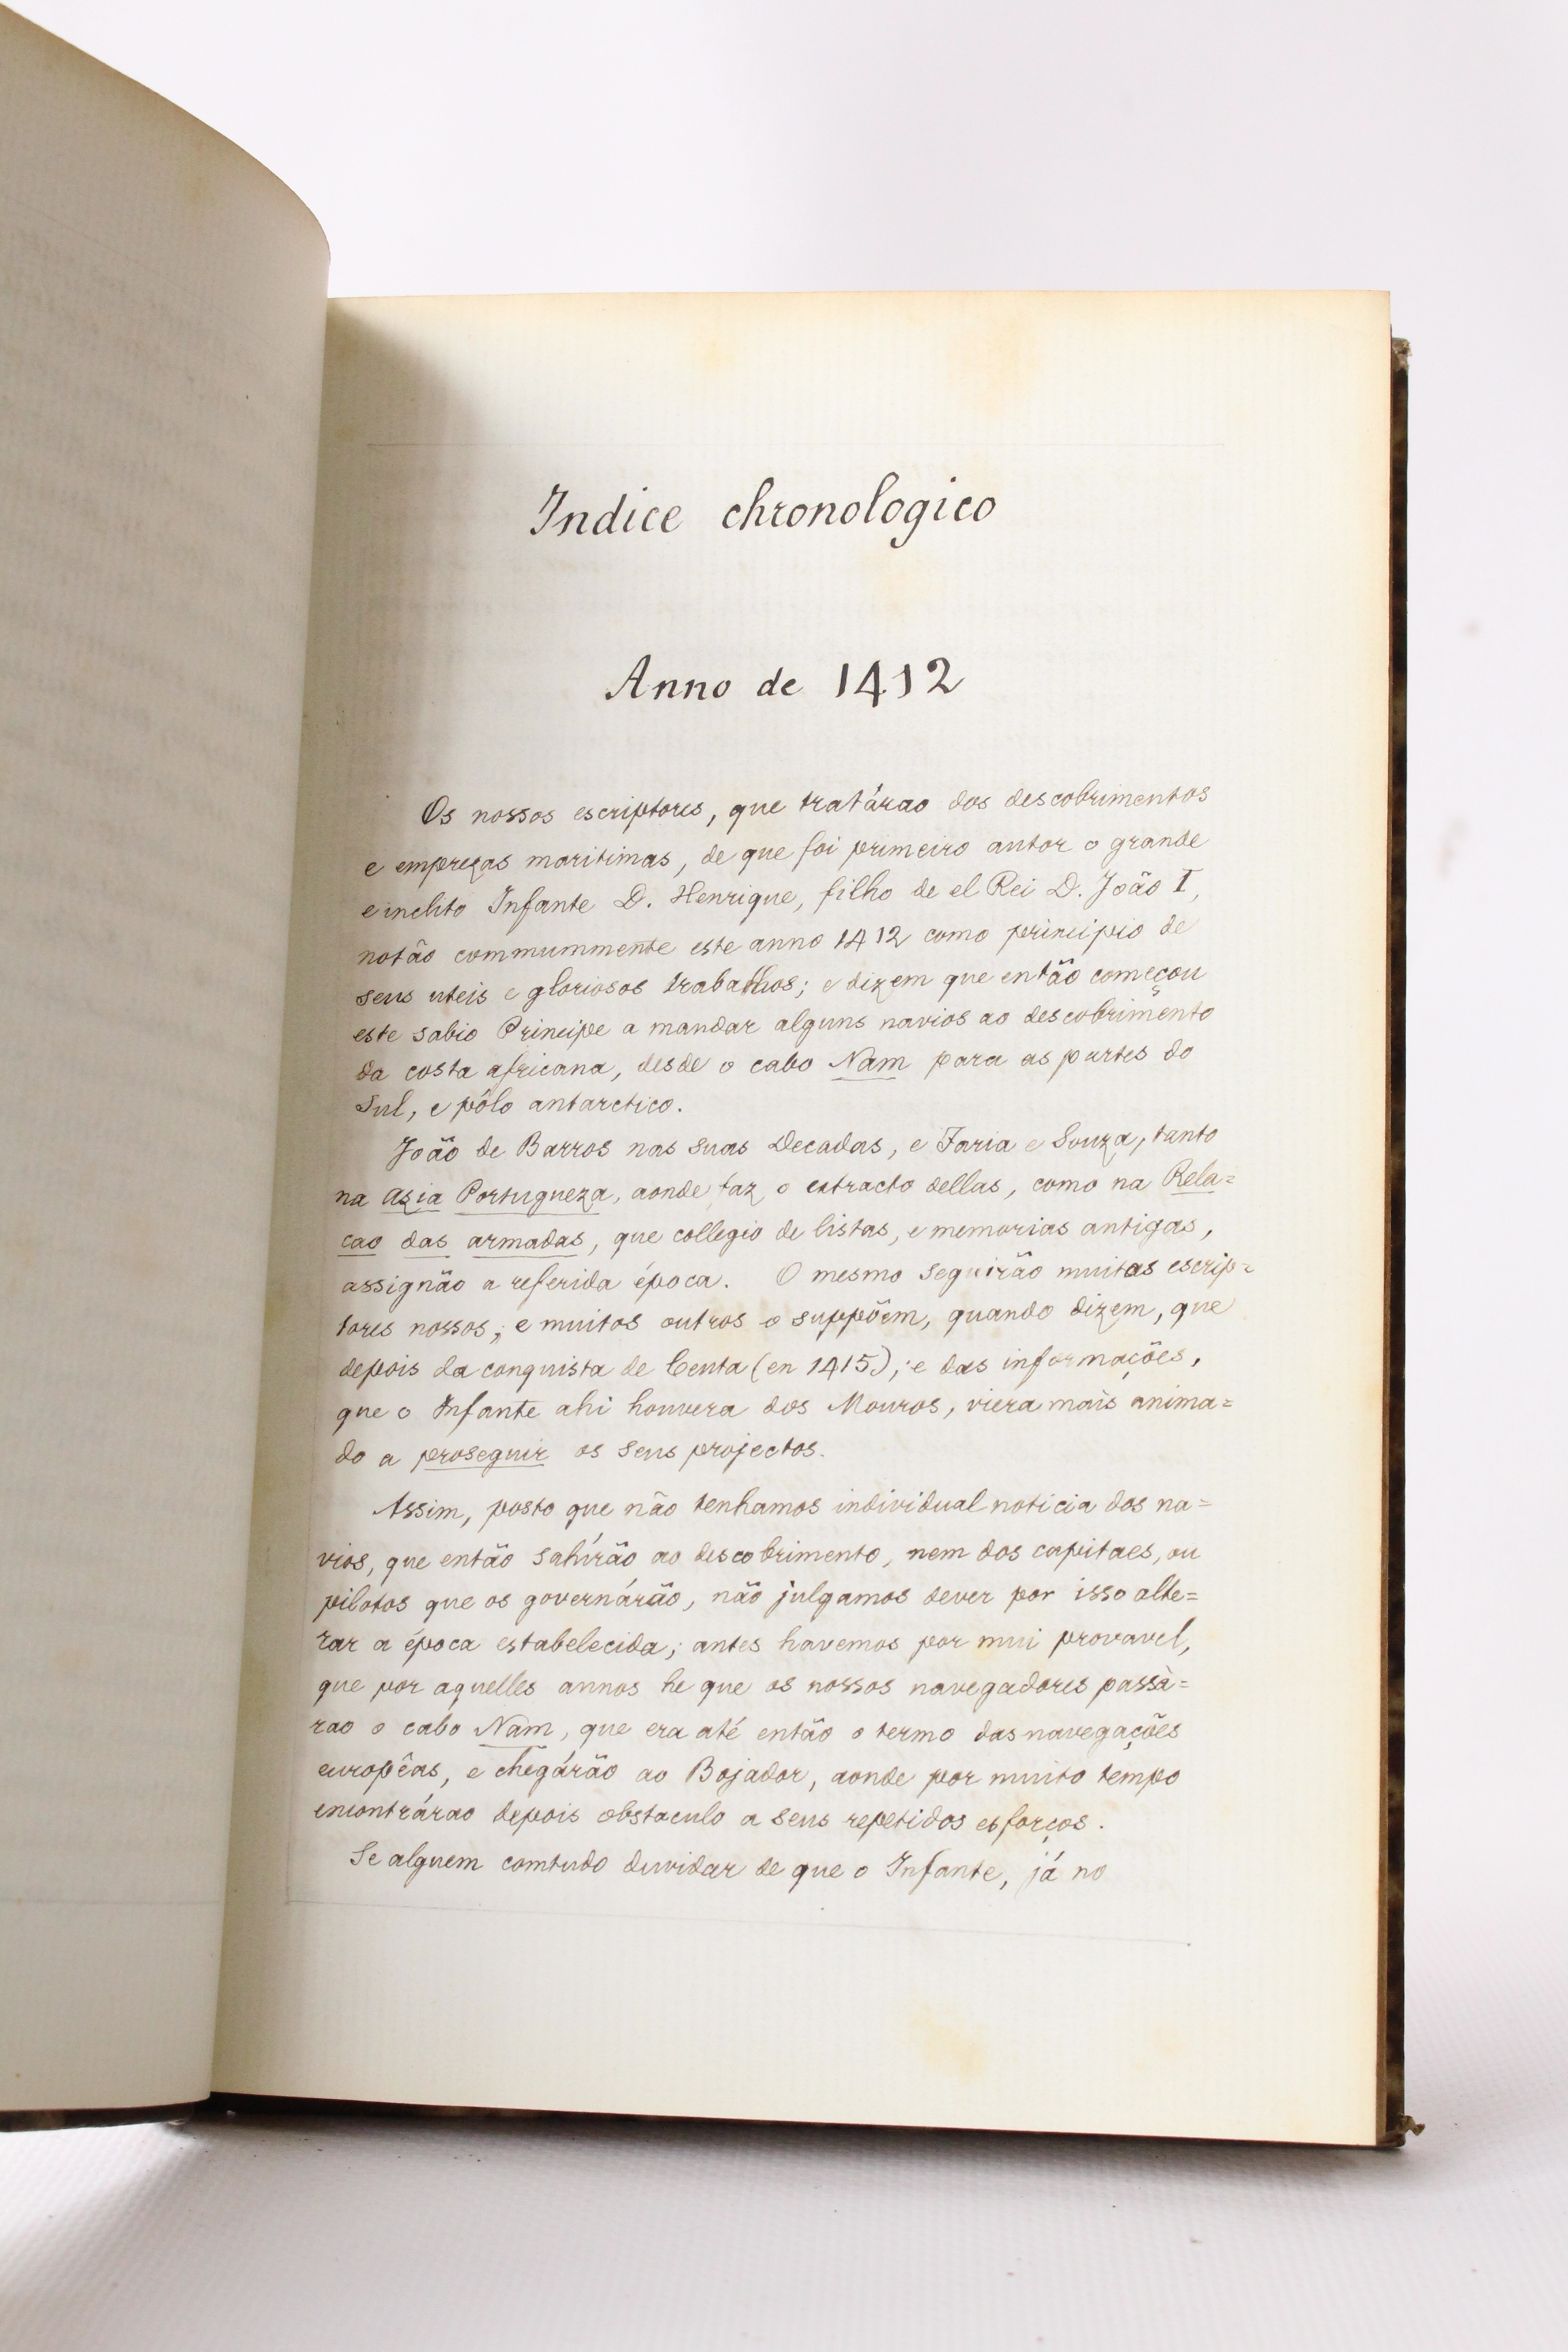 Indice chronologico
Anno de 1412
Os nossos escriptores, que tratárao dos descobrimentos
e emprezas maritimas, de que foi primeiro autor o grande
e inclito Infante D. Henrique, filho de el Rei D. João I,
notão commummente este anno 1412 como principio de
seus uteis e gloriosos trabalhos; e dizem que então começou
este sabio Principe a mandar alguns navios ao descobrimento
da costa africana, desde o cabo Nam para as partes do
Sul, e pôlo antarctico.
João de Barros nas suas Decadas, e Faria e Souza, tanto
na Azia Portugueza, aonde faz o extracto dellas, como na Rela=
cao das armadas, que collegio de listas, e memorias antigas,
assignão a referida época. O mesmo seguirão muitas escrip=
tores nossos; e muitos outros o suppõem, quando dizem, que
depois da conquista de Ceuta (en 1415); e das informações,
que o Infante ahi houvera dos Mouros, viera mais anima=
do a proseguir os seus projectos.
Assim, posto que não tenhamos individual noticia dos na=
vios, que então sahírão ao descobrimento, nem dos capitaes, ou
pilotos que os governárão, não julgamos dever por isso alte=
rar a época estabelecida; antes havemos por mui provavel,
que por aquelles annos he que os nossos navegadores passà=
rao o cabo Nam, que era até então o termo das navegações
européas, e chegárão ao Bojador, aonde por muito tempo
encontrárao depois obstaculo a seus repetidos esforços.
Se alguem comtudo duvidar de que o Infante, já no